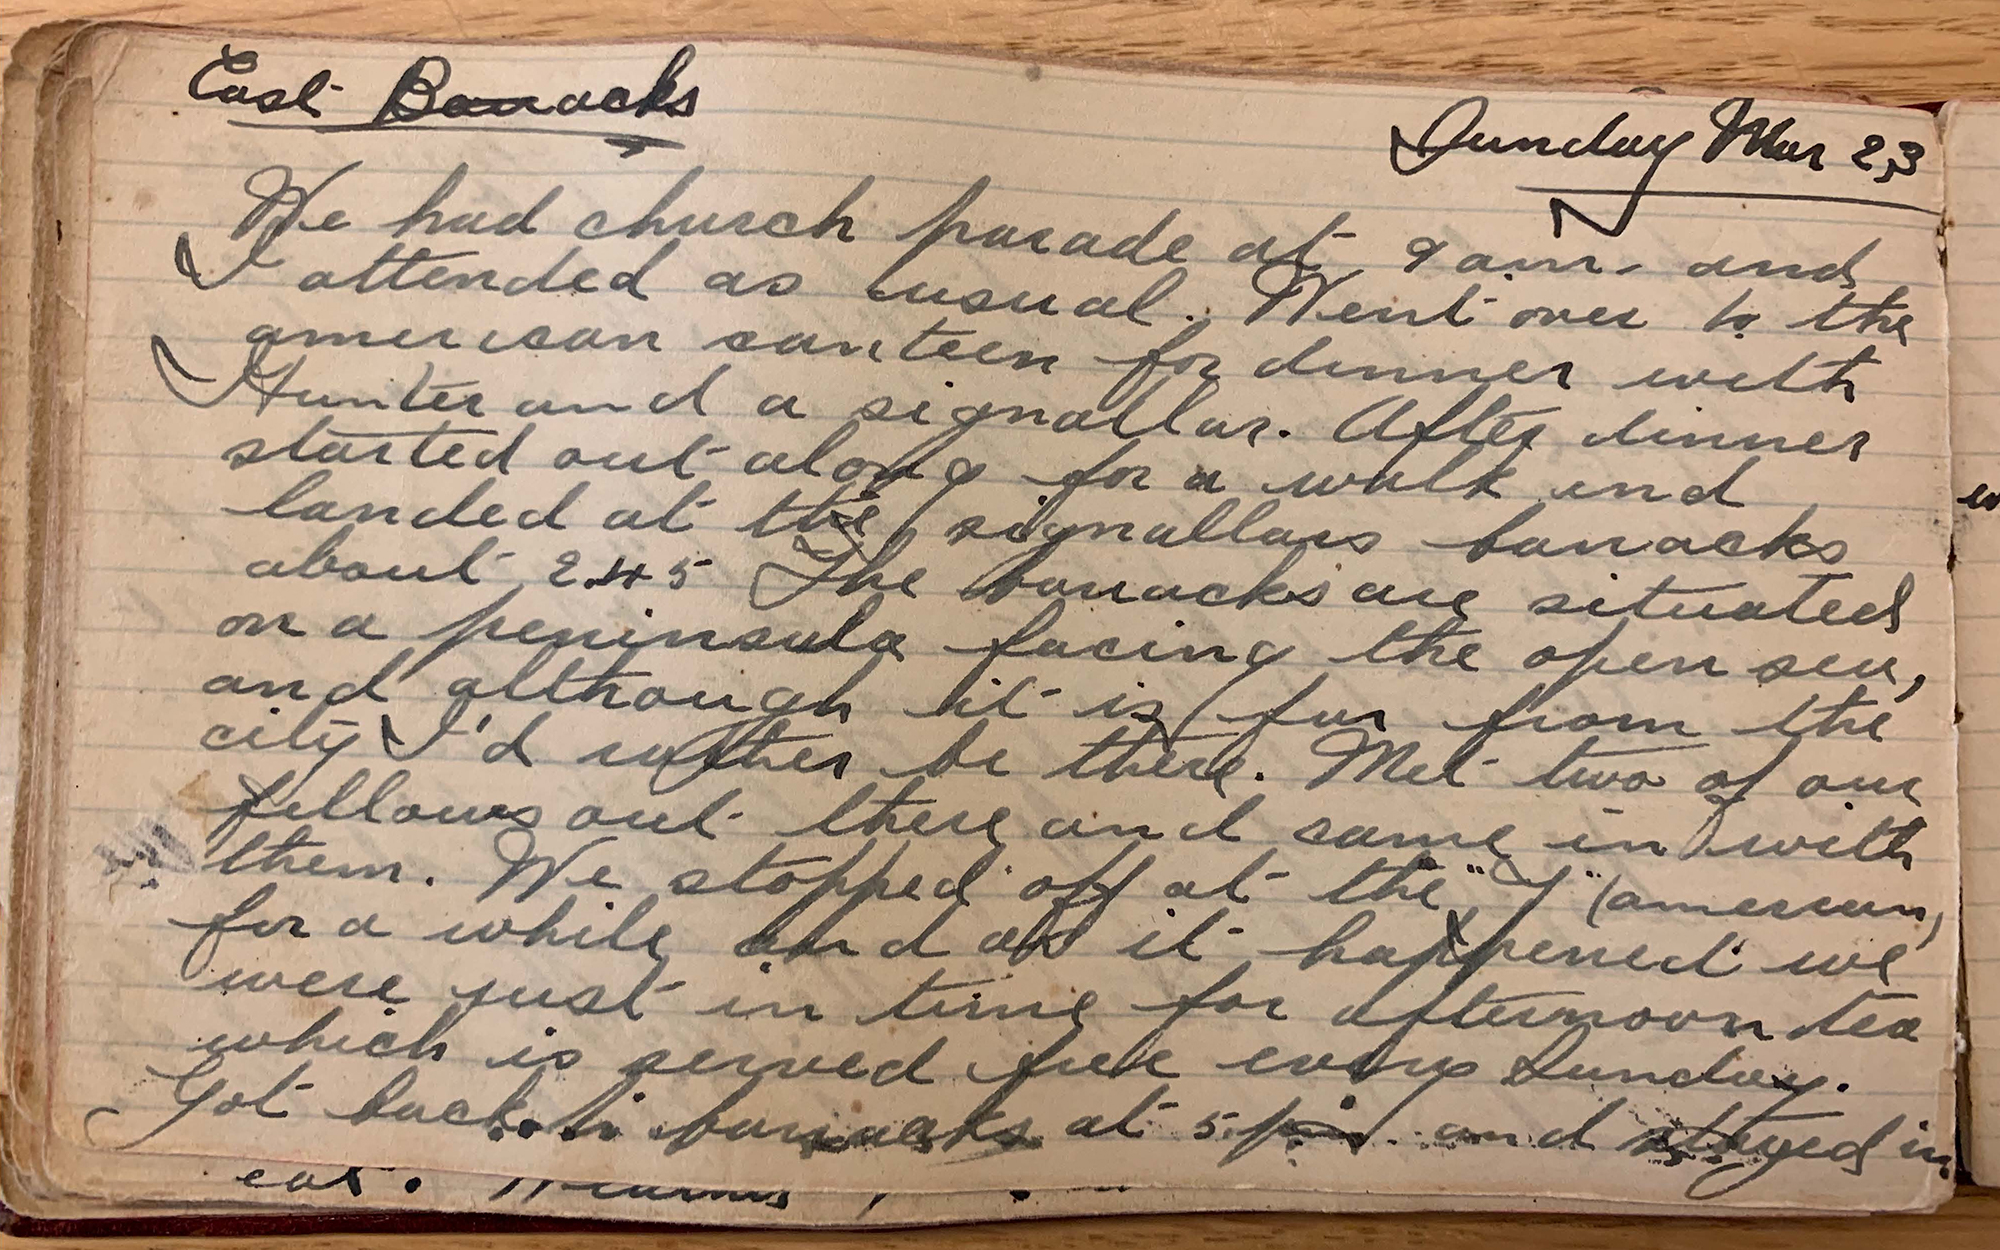 East Barracks
Sunday Mar 23
We had church parade at 9 am. and
I attended as usual. Went over to the
american canteen for dinner with
Hunter and a signallar. After dinner
started out along for a walk and
landed at the signallars barracks
about 2.45 The barracks are situated
on a peninsula facing the open sea,
and although it is far from the
city I'd rather be there. Met two of our
fellows out there and came in with
them. We stopped off at the "Y" (american)
for a while and as it happened we
were just in time for afternoon tea
which is served free every Sunday.
Got back to barracks at 5 pm. and stayed in.